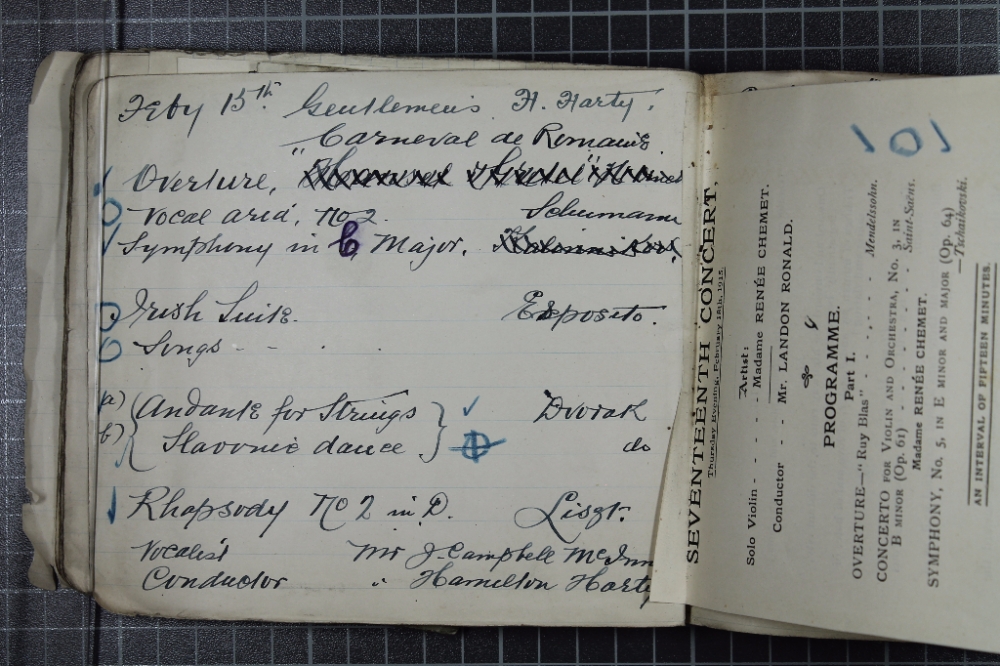 Feby 15th Gentlemen's H. Harty.
"Carneval de Romain"
Overture,
Vocal aria, No 2. Schumann
Symphony in C Major.
Irish Suite. Esposito.
Songs - - . .
a) (Andante for Strings ✓ Dvorak
b) Slavonic dance do
Rhapsody No 2 in D. Liszt.
Vocalist Mr J. Campbell McInn
Conductor " Hamilton Harty
101
SEVENTEENTH CONCERT.
Thursday Evening, February 18th, 1915.
Artist:
Solo Violin - - - - Madame RENÉE CHEMET.
Conductor - - Mr. LANDON RONALD.
PROGRAMME.
Part I.
OVERTURE—"Ruy Blas" - - - - - Mendelssohn.
CONCERTO for Violin and Orchestra, No. 3, in
B minor (Op. 61) - - - - - Saint-Saëns.
Madame RENÉE CHEMET.
SYMPHONY, No. 5, in E minor and major (Op. 64)
—Tschaikovski.
AN INTERVAL OF FIFTEEN MINUTES.